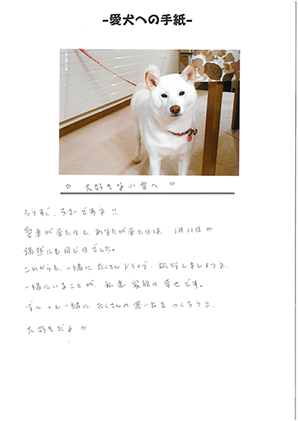 -愛犬への手紙-
♡ 大好きな小雪へ ♡
もうすぐ、3才ですよ!!
愛車が来た日と あなたが来た日は、1月11日の
偶然にも同じ日でした。
これからも、一緒に たくさんドライブ、旅行しましょうね。
一緒にいることが、私達 家族の 幸せです。
ず〜っと一緒に たくさんの思い出を つくろうね。
大好きだよ ♡